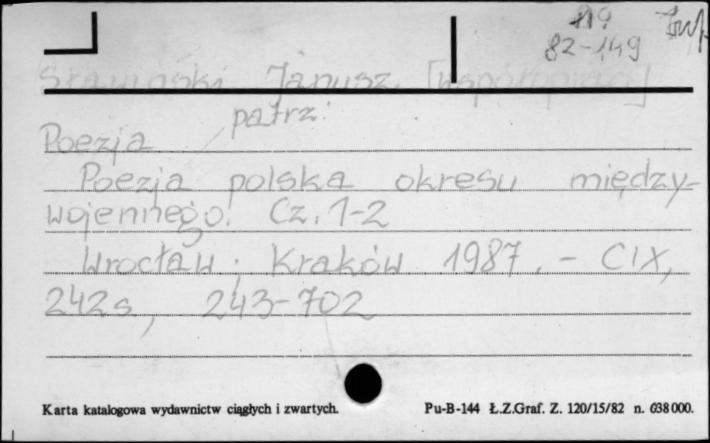 82-1,49
Sławiński, Janusz, [współoprac.]
patrz:
Poezja
Poezja polska okresu między-
wojennego. Cz. 1-2
Wrocław ; Kraków 1987. - CIX,
242s, 243-702
Karta katalogowa wydawnictw ciągłych i zwartych.
Pu-B-144 Ł.Z.Graf. Z. 120/15/82 n. 638000.